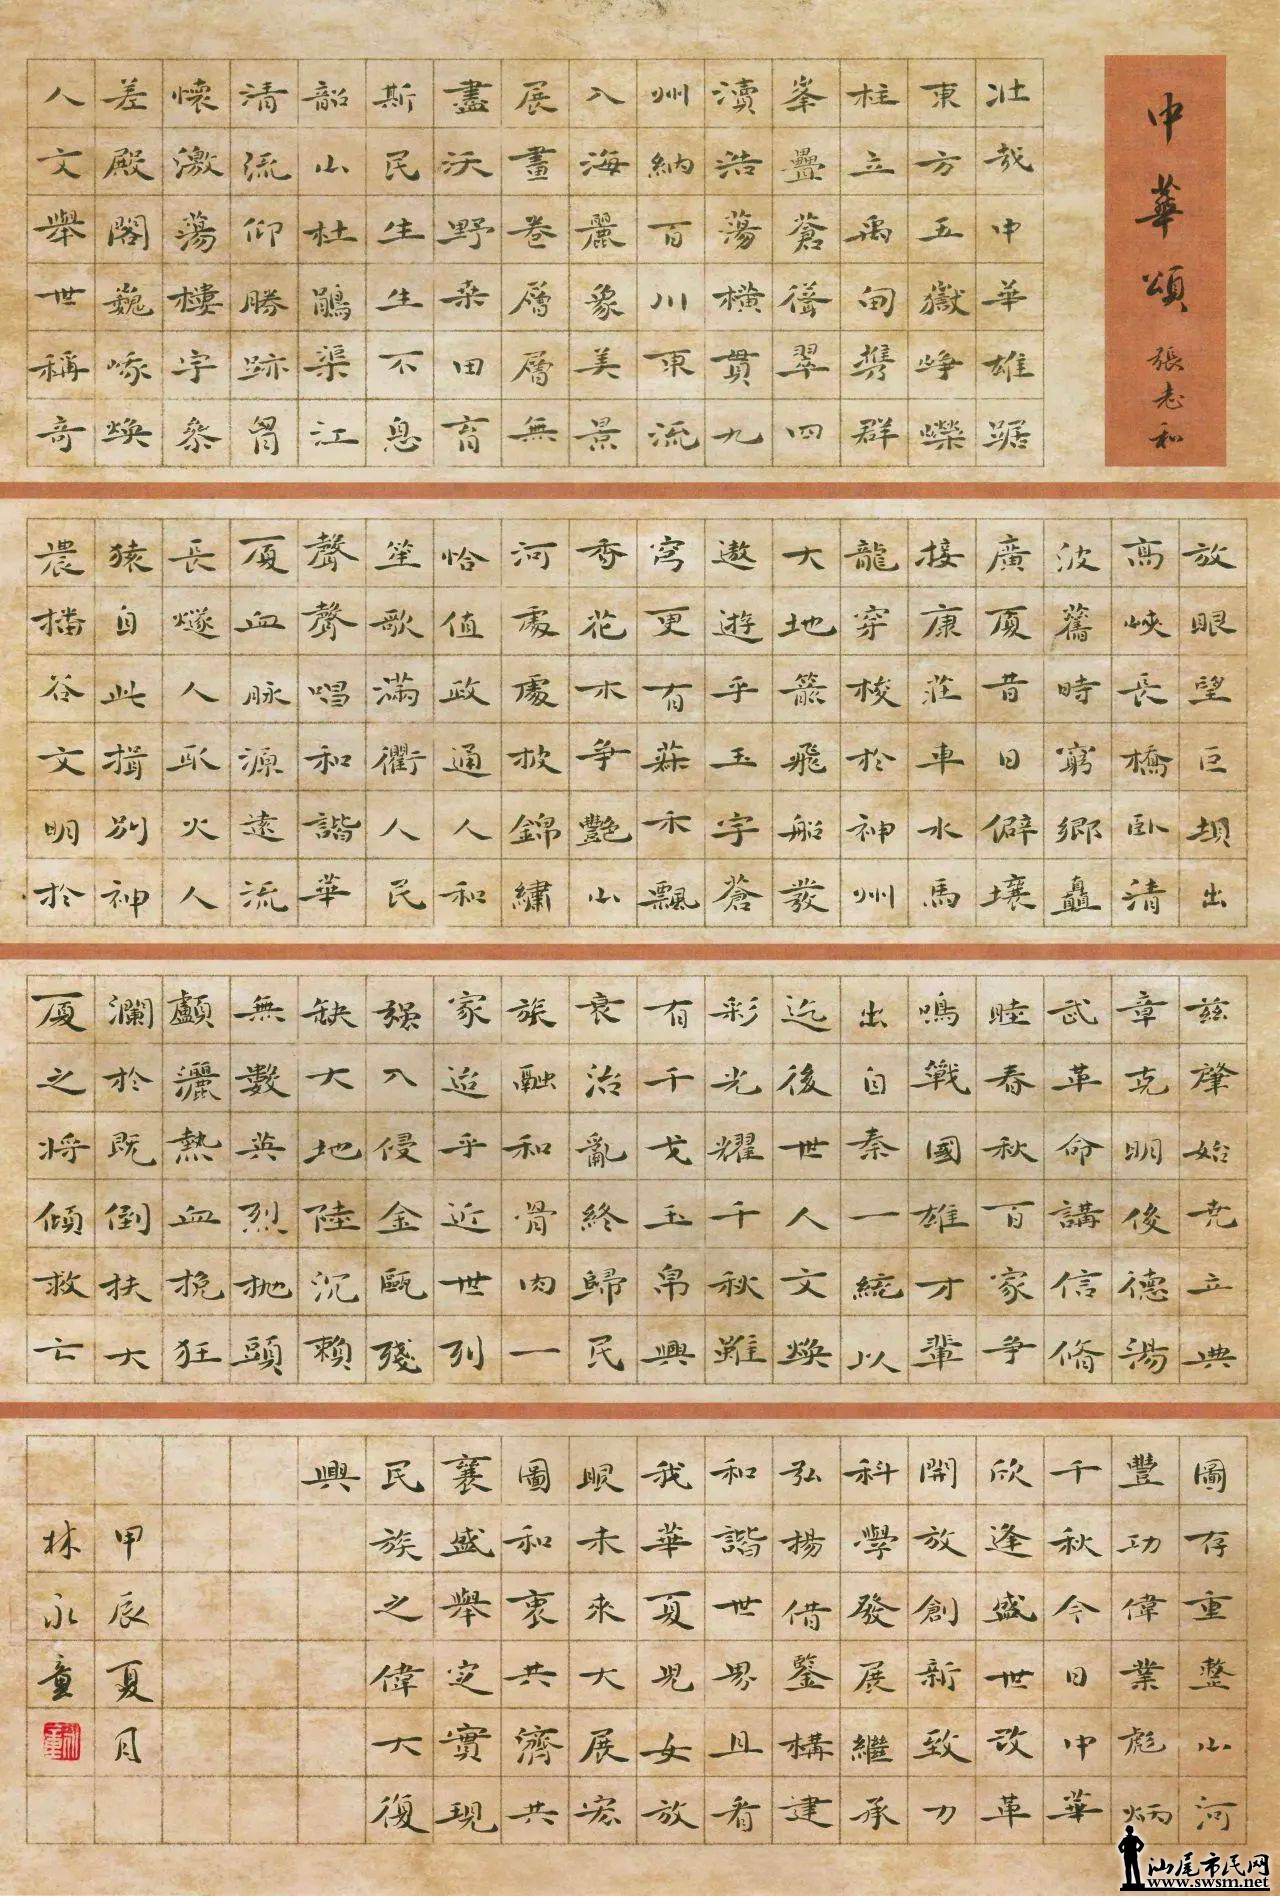 中華頌 張志和
壯哉中華雄踞
東方五嶽崢嶸
柱立禹甸攜群
峯疊蒼聳翠四
瀆浩蕩橫貫九
州納百川東流
入海麗象美景
展畫卷層層無
盡沃野桑田育
斯民生生不息
韶山杜鵑渠江
清流仰勝跡胥
懷激蕩樓宇參
差殿閣巍啄煥
人文舉世稱奇
放眼望巨壩出
高峽長橋卧清
波舊時窮鄉矗
廣厦昔日僻壤
接康莊車水馬
龍穿梭於神州
大地箭飛船發
遨遊乎玉宇蒼
穹更有蔴禾飄
香花木爭艷山
河處處披錦繡
恰值政通人和
笙歌滿衢人民
聲聲唱和諧華
夏血脉源遠流
長燧人取火人
猿自此揖別神
農播谷文明於
兹肇始堯立典
章克明俊德湯
武革命講信脩
睦春秋百家爭
鳴戰國雄才輩
出自秦一統以
迄後世人文煥
彩光耀千秋雖
有干戈玉帛興
衰治亂終歸民
族融和骨肉一
家迨乎近世列
强入侵金甌殘
缺大地陸沉賴
無數英烈抛頭
顱灑熱血挽狂
瀾於既倒扶大
夏之將傾救亡
圖存重整山河
豐功偉業彪炳
千秋今日中華
欣逢盛世改革
開放創新致力
科學發展繼承
弘揚借鑒構建
和諧世界且看
我華夏兒女放
眼未來大展宏
圖和衷共濟共
襄盛舉定實現
民族之偉大復
興
甲辰夏月
林永童
汕尾市民网
www.swsm.net